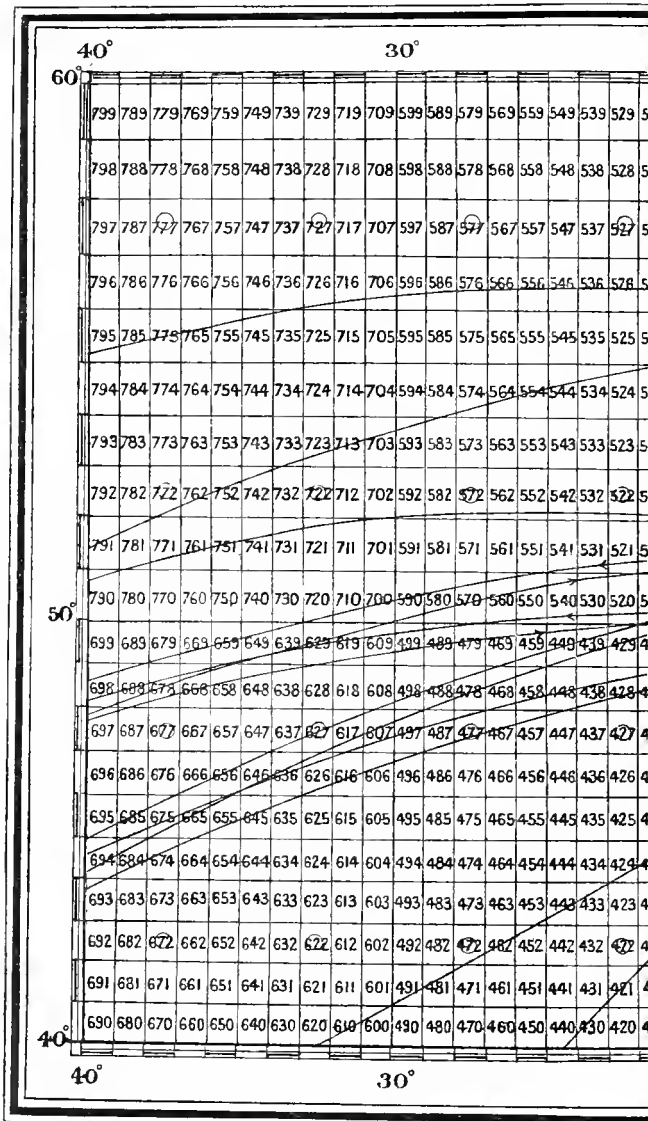 40° 30°
60°
799 789 779 769 759 749 739 729 719 709 599 589 579 569 559 549 539 529 5
798 788 778 768 758 748 738 728 718 708 598 588 578 568 558 548 538 528 5
797 787 777 767 757 747 737 727 717 707 597 587 577 567 557 547 537 527 5
796 786 776 766 756 746 736 726 716 706 596 586 576 566 556 546 536 526 5
795 785 775 765 755 745 735 725 715 705 595 585 575 565 555 545 535 525 5
794 784 774 764 754 744 734 724 714 704 594 584 574 564 554 544 534 524 5
793 783 773 763 753 743 733 723 713 703 593 583 573 563 553 543 533 523 5
792 782 772 762 752 742 732 722 712 702 592 582 572 562 552 542 532 522 5
791 781 771 761 751 741 731 721 711 701 591 581 571 561 551 541 531 521 5
790 780 770 760 750 740 730 720 710 700 590 580 570 560 550 540 530 520 5
50°
699 689 679 669 659 649 639 629 619 609 499 489 479 469 459 449 439 429 4
698 688 678 668 658 648 638 628 618 608 498 488 478 468 458 448 438 428 4
697 687 677 667 657 647 637 627 617 607 497 487 477 467 457 447 437 427 4
696 686 676 666 656 646 636 626 616 606 496 486 476 466 456 446 436 426 4
695 685 675 665 655 645 635 625 615 605 495 485 475 465 455 445 435 425 4
694 684 674 664 654 644 634 624 614 604 494 484 474 464 454 444 434 424 4
693 683 673 663 653 643 633 623 613 603 493 483 473 463 453 443 433 423 4
692 682 672 662 652 642 632 622 612 602 492 482 472 482 452 442 432 422 4
691 681 671 661 651 641 631 621 611 601 491 481 471 461 451 441 431 421 4
690 680 670 660 650 640 630 620 610 600 490 480 470 460 450 440 430 420 4
40°
40° 30°